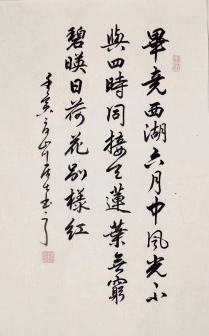 畢竟西湖六月中風光不
與四時同接天蓮葉無窮
碧暎日荷花別樣紅
壬寅